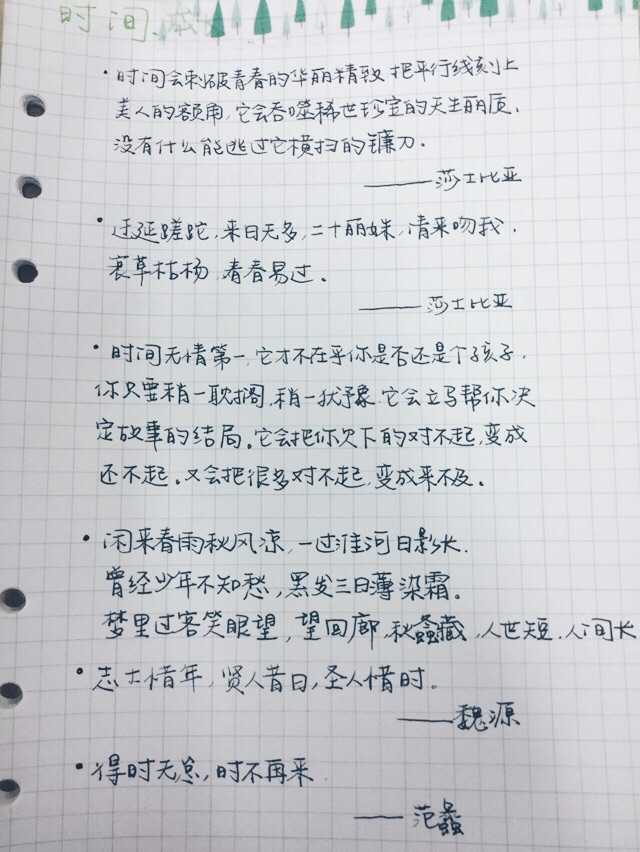 时间
·时间会刺破青春的华丽精致 把平行线刻上
美人的额角,它会吞噬稀世珍宝的天生丽质,
没有什么能逃过它横扫的镰刀.
——莎士比亚
·迂延蹉跎,来日无多,二十丽姝,请来吻我,
衰草枯杨 青春易过.
——莎士比亚
·时间无情第一,它才不在乎你是否还是个孩子,
你只要稍一耽搁,稍一犹豫,它会立马帮你决
定故事的结局。它会把你欠下的对不起,变成
还不起。又会把很多对不起,变成来不及。
·闲来春雨秋风凉,一过淮河日影长.
曾经少年不知愁,黑发三日薄染霜。
梦里过客笑眼望,望回廊,秋螽藏,人世短,人间长
·志士惜年,贤人昔日,圣人惜时。
——魏源
·得时无怠,时不再来
——范蠡